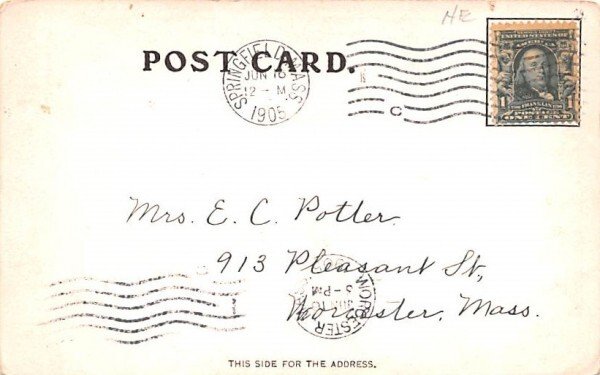 HE
POST CARD.
SPRINGFIELD, MASS.
JUN 16
12 - M
1905
C
UNITED STATES OF AMERICA
1 FRANKLIN 1
ONE CENT
Mrs. E. C. Potter.
913 Pleasant St,
Worcester, Mass.
WORCESTER
JUN
5 - PM
THIS SIDE FOR THE ADDRESS.